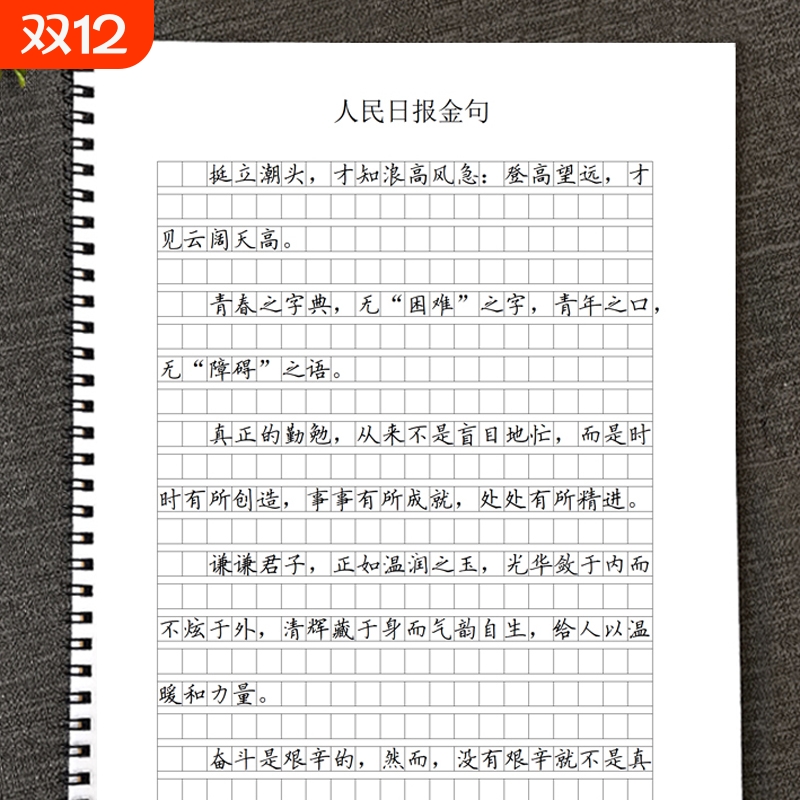 双12
人民日报金句
挺立潮头，才知浪高风急：登高望远，才
见云阔天高。
青春之字典，无“困难”之字，青年之口，
无“障碍”之语。
真正的勤勉，从来不是盲目地忙，而是时
时有所创造，事事有所成就，处处有所精进。
谦谦君子，正如温润之玉，光华敛于内而
不炫于外，清辉藏于身而气韵自生，给人以温
暖和力量。
奋斗是艰辛的，然而，没有艰辛就不是真